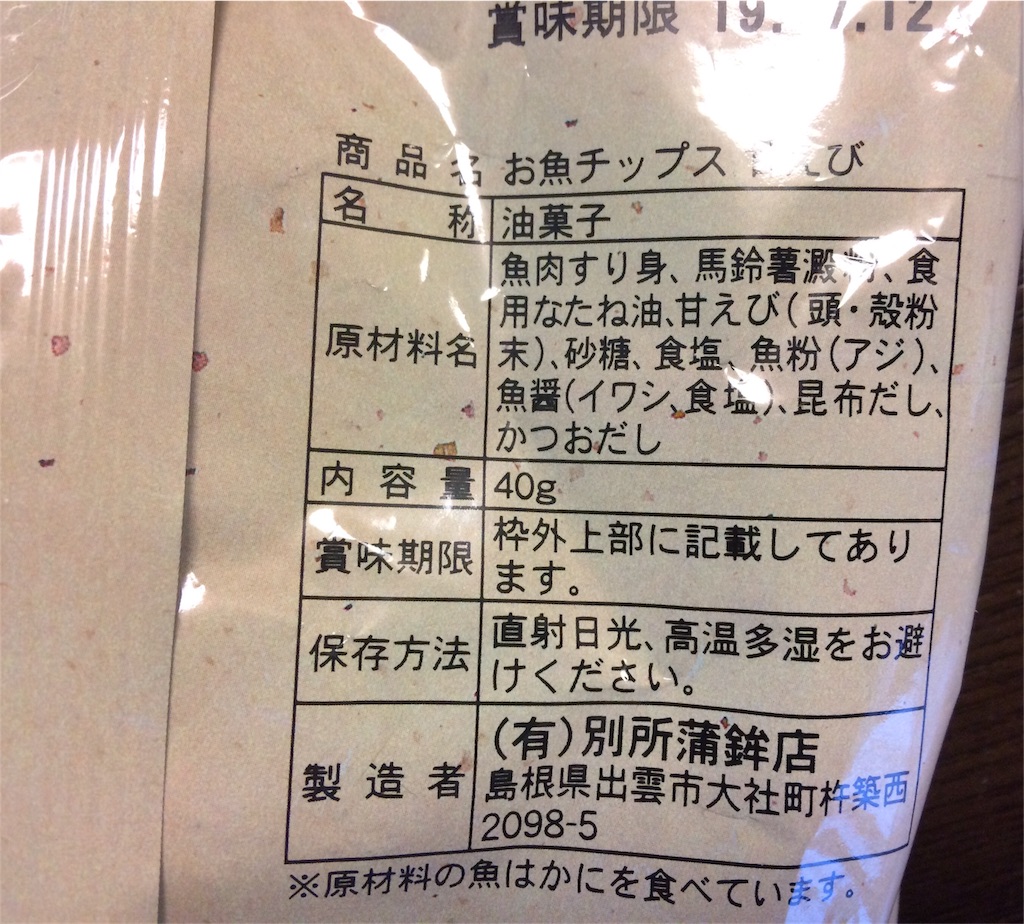 賞味期限 19. 7.12
商品名 お魚チップス えび
名称 油菓子
原材料名 魚肉すり身、馬鈴薯澱粉、食
用なたね油、甘えび(頭・殻粉
末)、砂糖、食塩、魚粉(アジ)、
魚醤(イワシ、食塩)、昆布だし、
かつおだし
内容量 40g
賞味期限 枠外上部に記載してあり
ます。
保存方法 直射日光、高温多湿をお避
けください。
製造者 (有)別所蒲鉾店
島根県出雲市大社町杵築西
2098-5
※原材料の魚はかにを食べています。